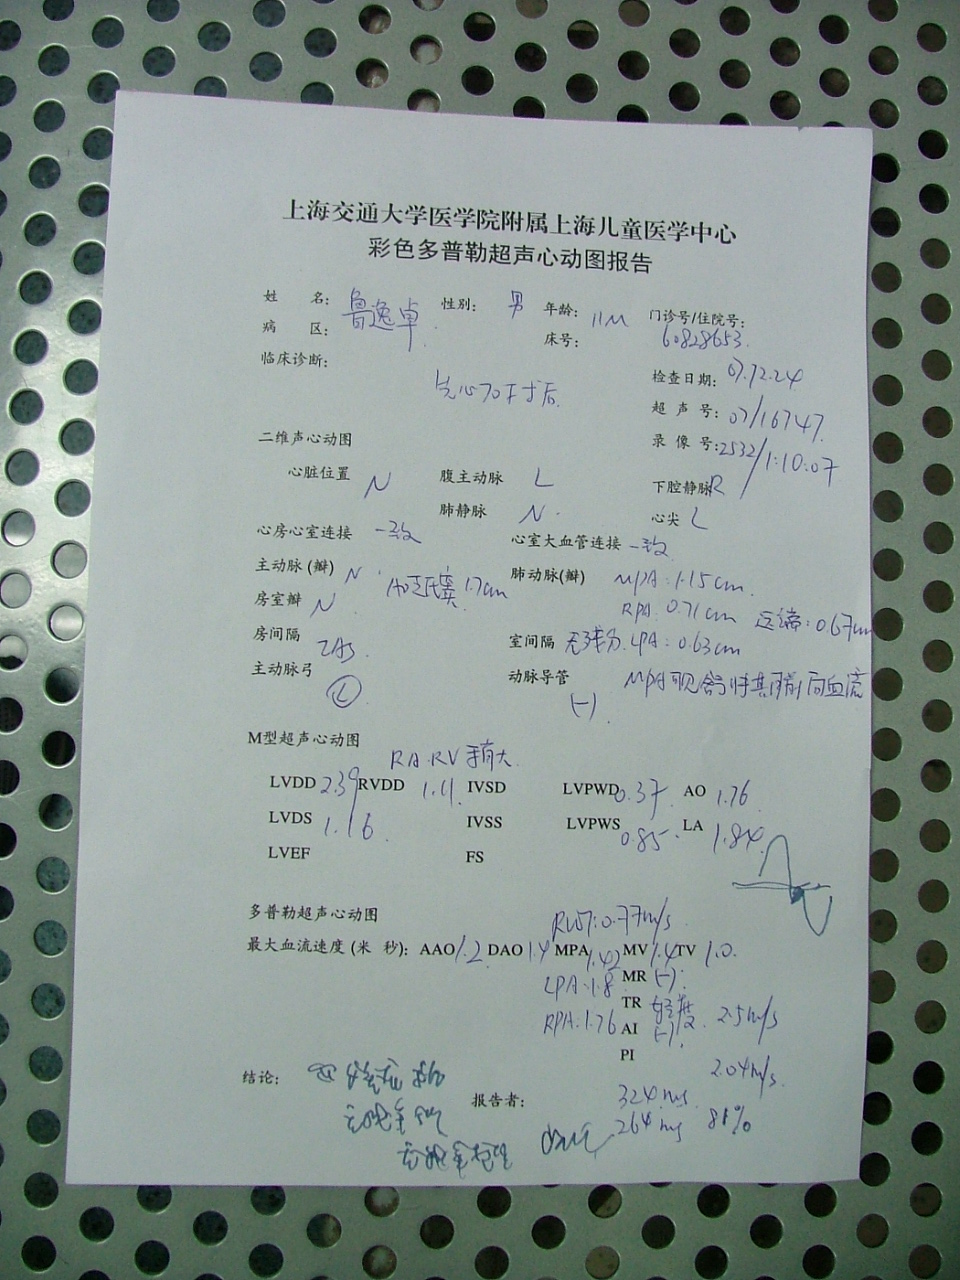 上海交通大学医学院附属上海儿童医学中心
彩色多普勒超声心动图报告
姓 名: 鲁逸卓 性别: 男 年龄: 11M 门诊号/住院号:
病 区: 床号: 60828653
临床诊断: 检查日期: 07.12.24
先心 术后 超 声 号: 07/16747
二维声心动图 录 像 号: 2532/1:10:07
心脏位置 N 腹主动脉 L 下腔静脉 R
肺静脉 N 心尖 L
心房心室连接 一致 心室大血管连接 一致
主动脉(瓣) N 1.7cm 肺动脉(瓣) MPA: 1.15cm
房室瓣 N RPA: 0.71cm 远端: 0.67cm
房间隔 IAS 室间隔 无残分 LPA: 0.63cm
主动脉弓 L 动脉导管 (-) MPA可见舒张期 向血流
M型超声心动图
RA.RV 大
LVDD 2.39 RVDD 1.11 IVSD LVPWD 0.37 AO 1.76
LVDS 1.16 IVSS LVPWS 0.85 LA 1.84
LVEF FS
多普勒超声心动图 RVOT: 0.77m/s
最大血流速度 (米 秒): AAO 1.2 DAO 1.4 MPA 1.42 MV 1.4 TV 1.0
LPA: 1.8 MR (-)
RPA: 1.76 TR 轻度 2.5m/s
AI (-)
PI 2.04m/s
结论:
报告者:
324ms
264ms 81%